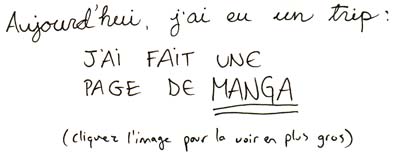 Aujourd'hui, j'ai eu un trip :
J'AI FAIT UNE
PAGE DE MANGA
(cliquez l'image pour la voir en plus gros)